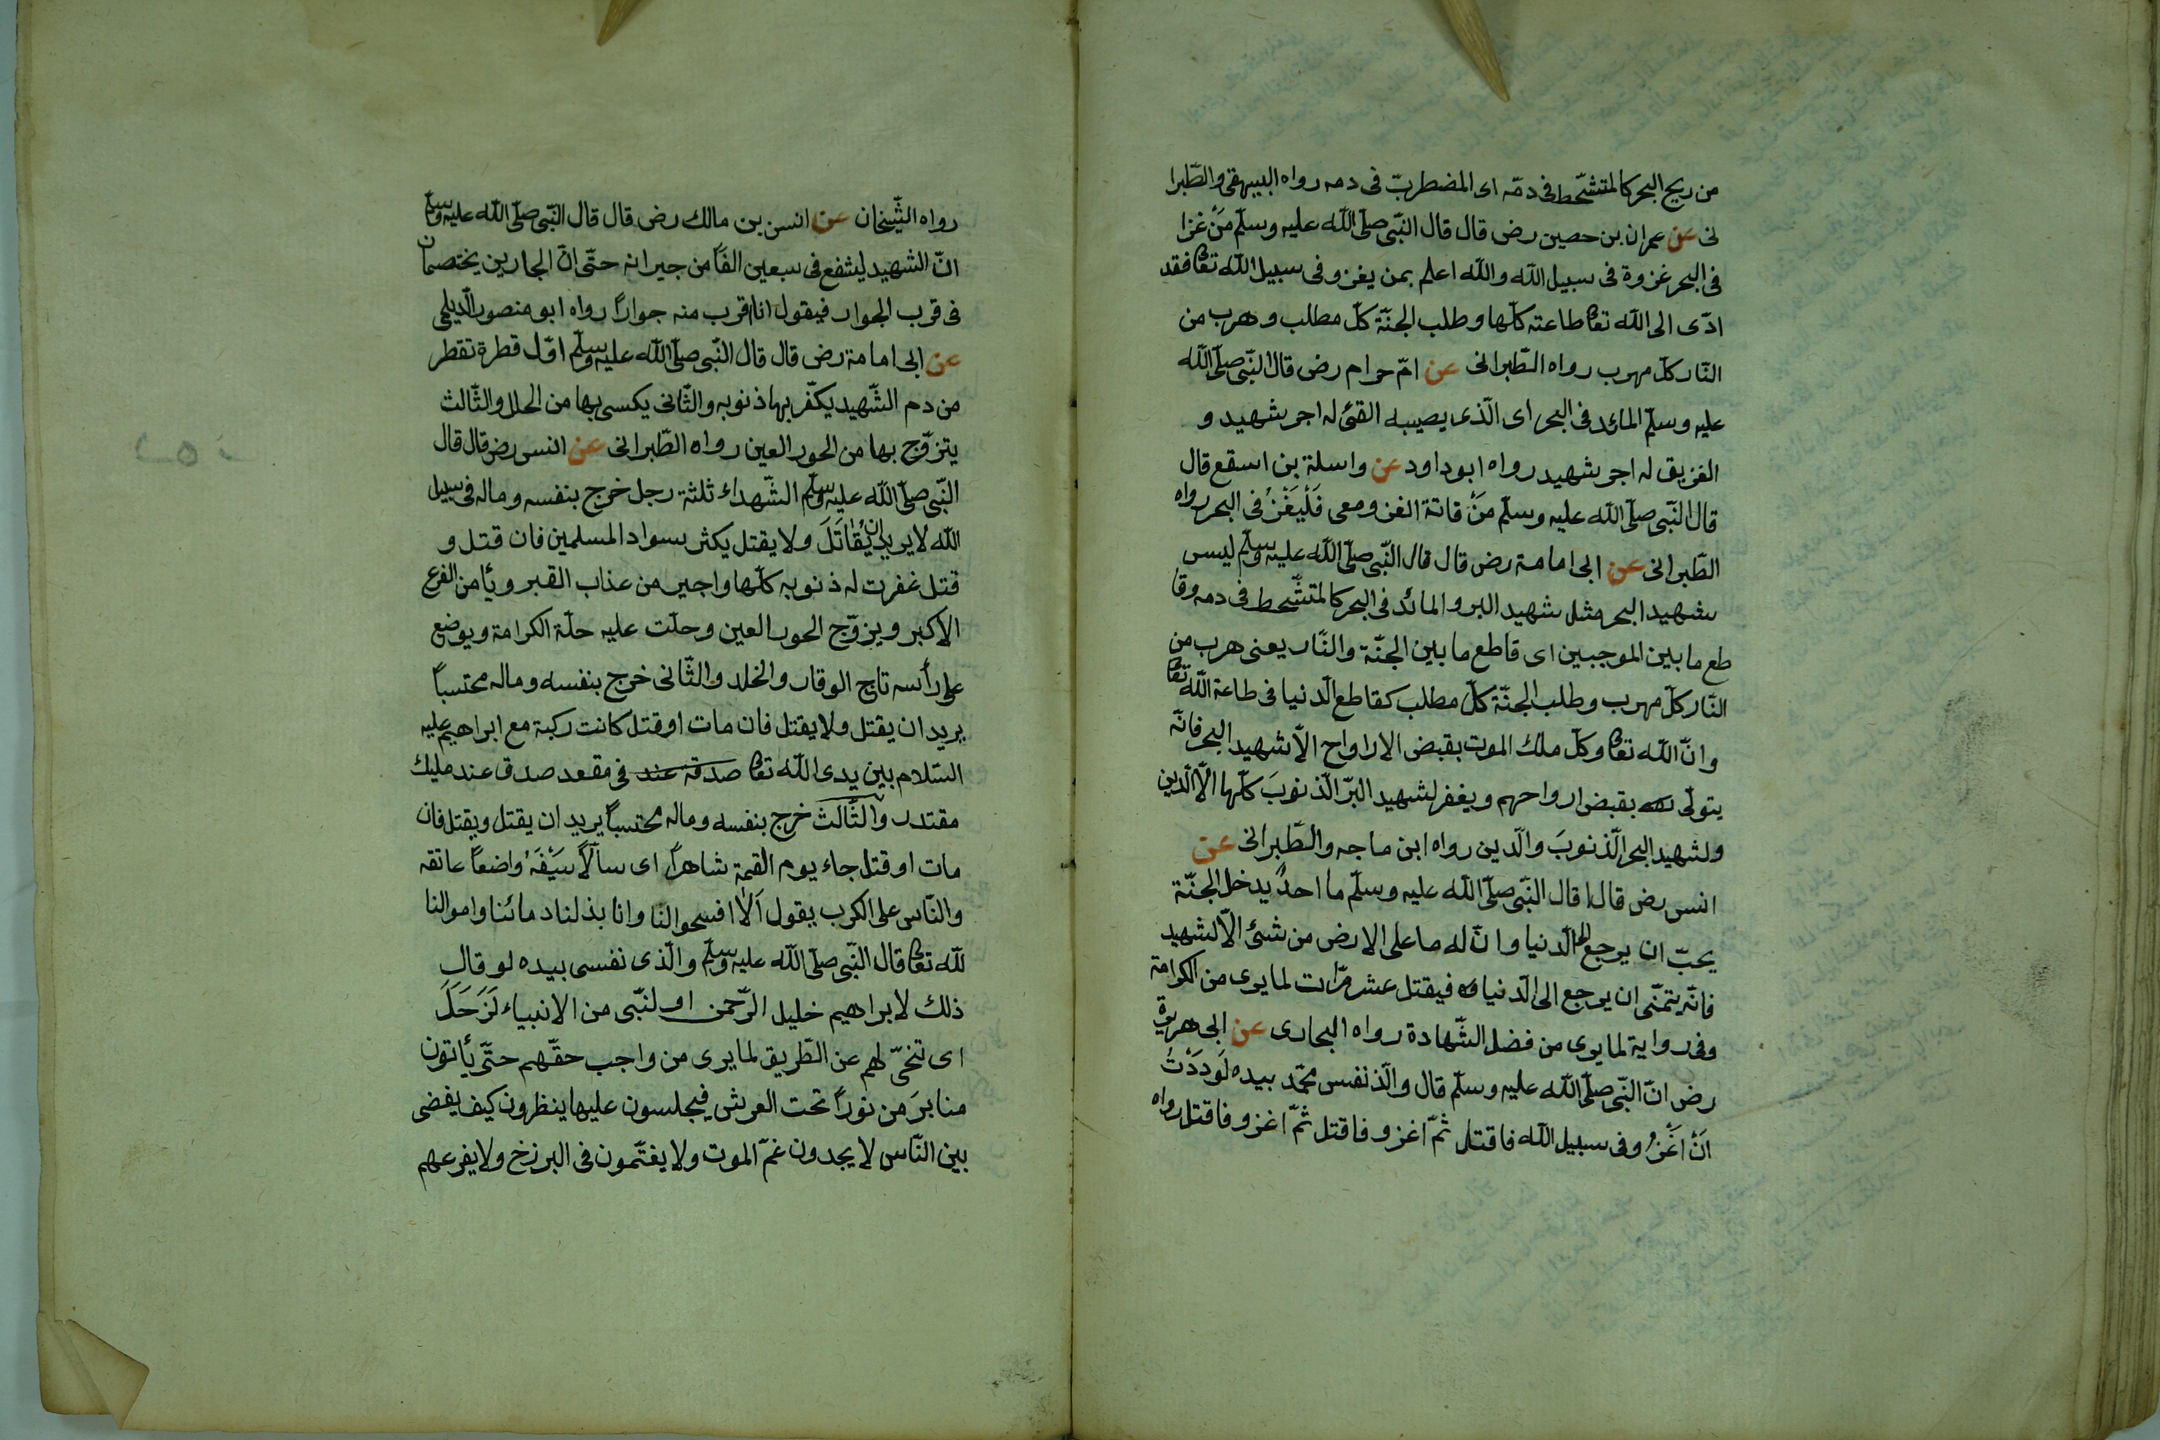 من ريح البحر كالمتشحّط فى دمّه اى المضطربّ فى دمه رواه البيهقى والطّبرا
نى عن عمران بن حصين رض قال قال النّبى صلّى اللّه عليه وسلّم مَنْ غزا
فى البحر غزوة فى سبيل اللّه واللّه اعلم بمن يغزو فى سبيل اللّه تعا فقد
ادّى الى اللّه تعا طاعته كلّها وطلب الجنّة كلّ مطلب وهرب من
النّار كلّ مهرب رواه الطّبرانى عن امّ حرام رض قال النّبى صلّى اللّه
عليه وسلّم المائد فى البحر اى الّذى يصيبه القئ له اجر شهيد و
الغريق له اجر شهيد رواه ابو داود عن واسلة بن اسقع قال
قال النّبى صلّى اللّه عليه وسلّم مَنْ فاتة الغزو معى فَلْيَغْزُ فى البحر رواه
الطّبرانى عن ابى امامة رض قال قال النّبى صلّى اللّه عليه وسلّم ليس
شهيد البحر مثل شهيد البر والمائد فى البحر كالمتشّحط فى دمه وقا
طع ما بين الموجبين اى قاطع ما بين الجنّة والنّار يعنى هرب من
النّار كلّ مهرب وطلب الجنّة كلّ مطلب كقاطع الدنيا فى طاعة اللّه تعا
وانّ اللّه تعا وكلّ ملك الموت بقبض الارواح الاّ شهيد البحر فانّه
يتولّى بقبض ارواحهم ويغفر لشهيد البرّ الذنوبَ كلّها الاّ الدين
ولشهيد البحر الّذنوبَ والّدين رواه ابن ماجه والطّبرانى عن
انس رض قال قال النّبى صلّى اللّه عليه وسلّم ما احدٌ يدخل الجنّة
يحبّ ان يرجع الى الّدنيا وانّ له ما على الارض من شئ الاّ الشهيد
فانّه يتمنّى ان يرجع الى الّدنيا فيقتل عشر مرّات لما يرى من الكرامة
وفى رواية لما يرى من فضل الشّهادة رواه البخارى عن ابى هريرة
رض انّ النّبى صلّى اللّه عليه وسلّم قال والّذ نفس محمّد بيده لَوَدَدْتُ
اَنْ اَغْزُو فى سبيل اللّه فاقتل ثمّ اغزو فاقتل ثمّ اغزو فاقتل رواه
رواه الشّيخان عن انس بن مالك رض قال قال النّبى صلّى اللّه عليه وسلّم
انّ الشهيد ليشفع فى سبعين الفًا من جيرانه حتّى انّ الجارين يختصمان
فى قرب الجوار فيقول انا اقرب منه جوارًا رواه ابو منصور الّديلمى
عن ابى امامة رض قال قال النّبى صلّى اللّه عليه وسلّم اوّل قطرة تقطر
من دم الشّهيد يكفّر بها ذنوبه والثّانى يكسى بها من الحلل والثّالث
يتزوّج بها من الحور العين رواه الطّبرانى عن انس رض قال قال
النّبى صلّى اللّه عليه وسلّم الشّهداء ثلثة رجل خرج بنفسه وماله فى سبيل
اللّه لا يريد ان يُقَاتَلَ ولا يقتل يكثر سواد المسلمين فان قتل و
قتل غفرت له ذنوبه كلّها واجير من عذاب القبر ويأمن الفزع
الاكبر ويزوّج الحور العين وحلّت عليه حلّة الكرامة ويوضع
على رأسه تاج الوقار والخلد والثّانى خرج بنفسه وماله محتسبًا
يريد ان يقتل ولا يقتل فان مات او قتل كانت ركبة مع ابراهيم عليه
السّلام بين يدى اللّه تعا صدقة عند فى مقعد صدق عند مليك
مقتدر والثّالث خرج بنفسه وماله محتسبًا يريد ان يقتل ويقتل فان
مات او قتل جاء يوم القيمة شاهرًا اى سآلاً سَيْفَهُ واضعًا عاتقه
والنّاس على الكرب يقول اَلاَ افسحوا لنا وانا بذلنا دمائنا واموالنا
للّه تعا قال النّبى صلّى اللّه عليه وسلّم والّذى نفسى بيده لو قال
ذلك لابراهيم خليل الرّحمن او لنبّى من الانبياء لَزَحَلَ
اى تنحّى لهم عن الطّريق لما يرى من واجب حقّهم حتّى يأتون
منابرَ من نورًا تحت العرش فيجلسون عليها ينظرون كيف يقضى
بين النّاس لا يجدون غمّ الموت ولا يغتّمون فى البرزخ ولا يفزعهم